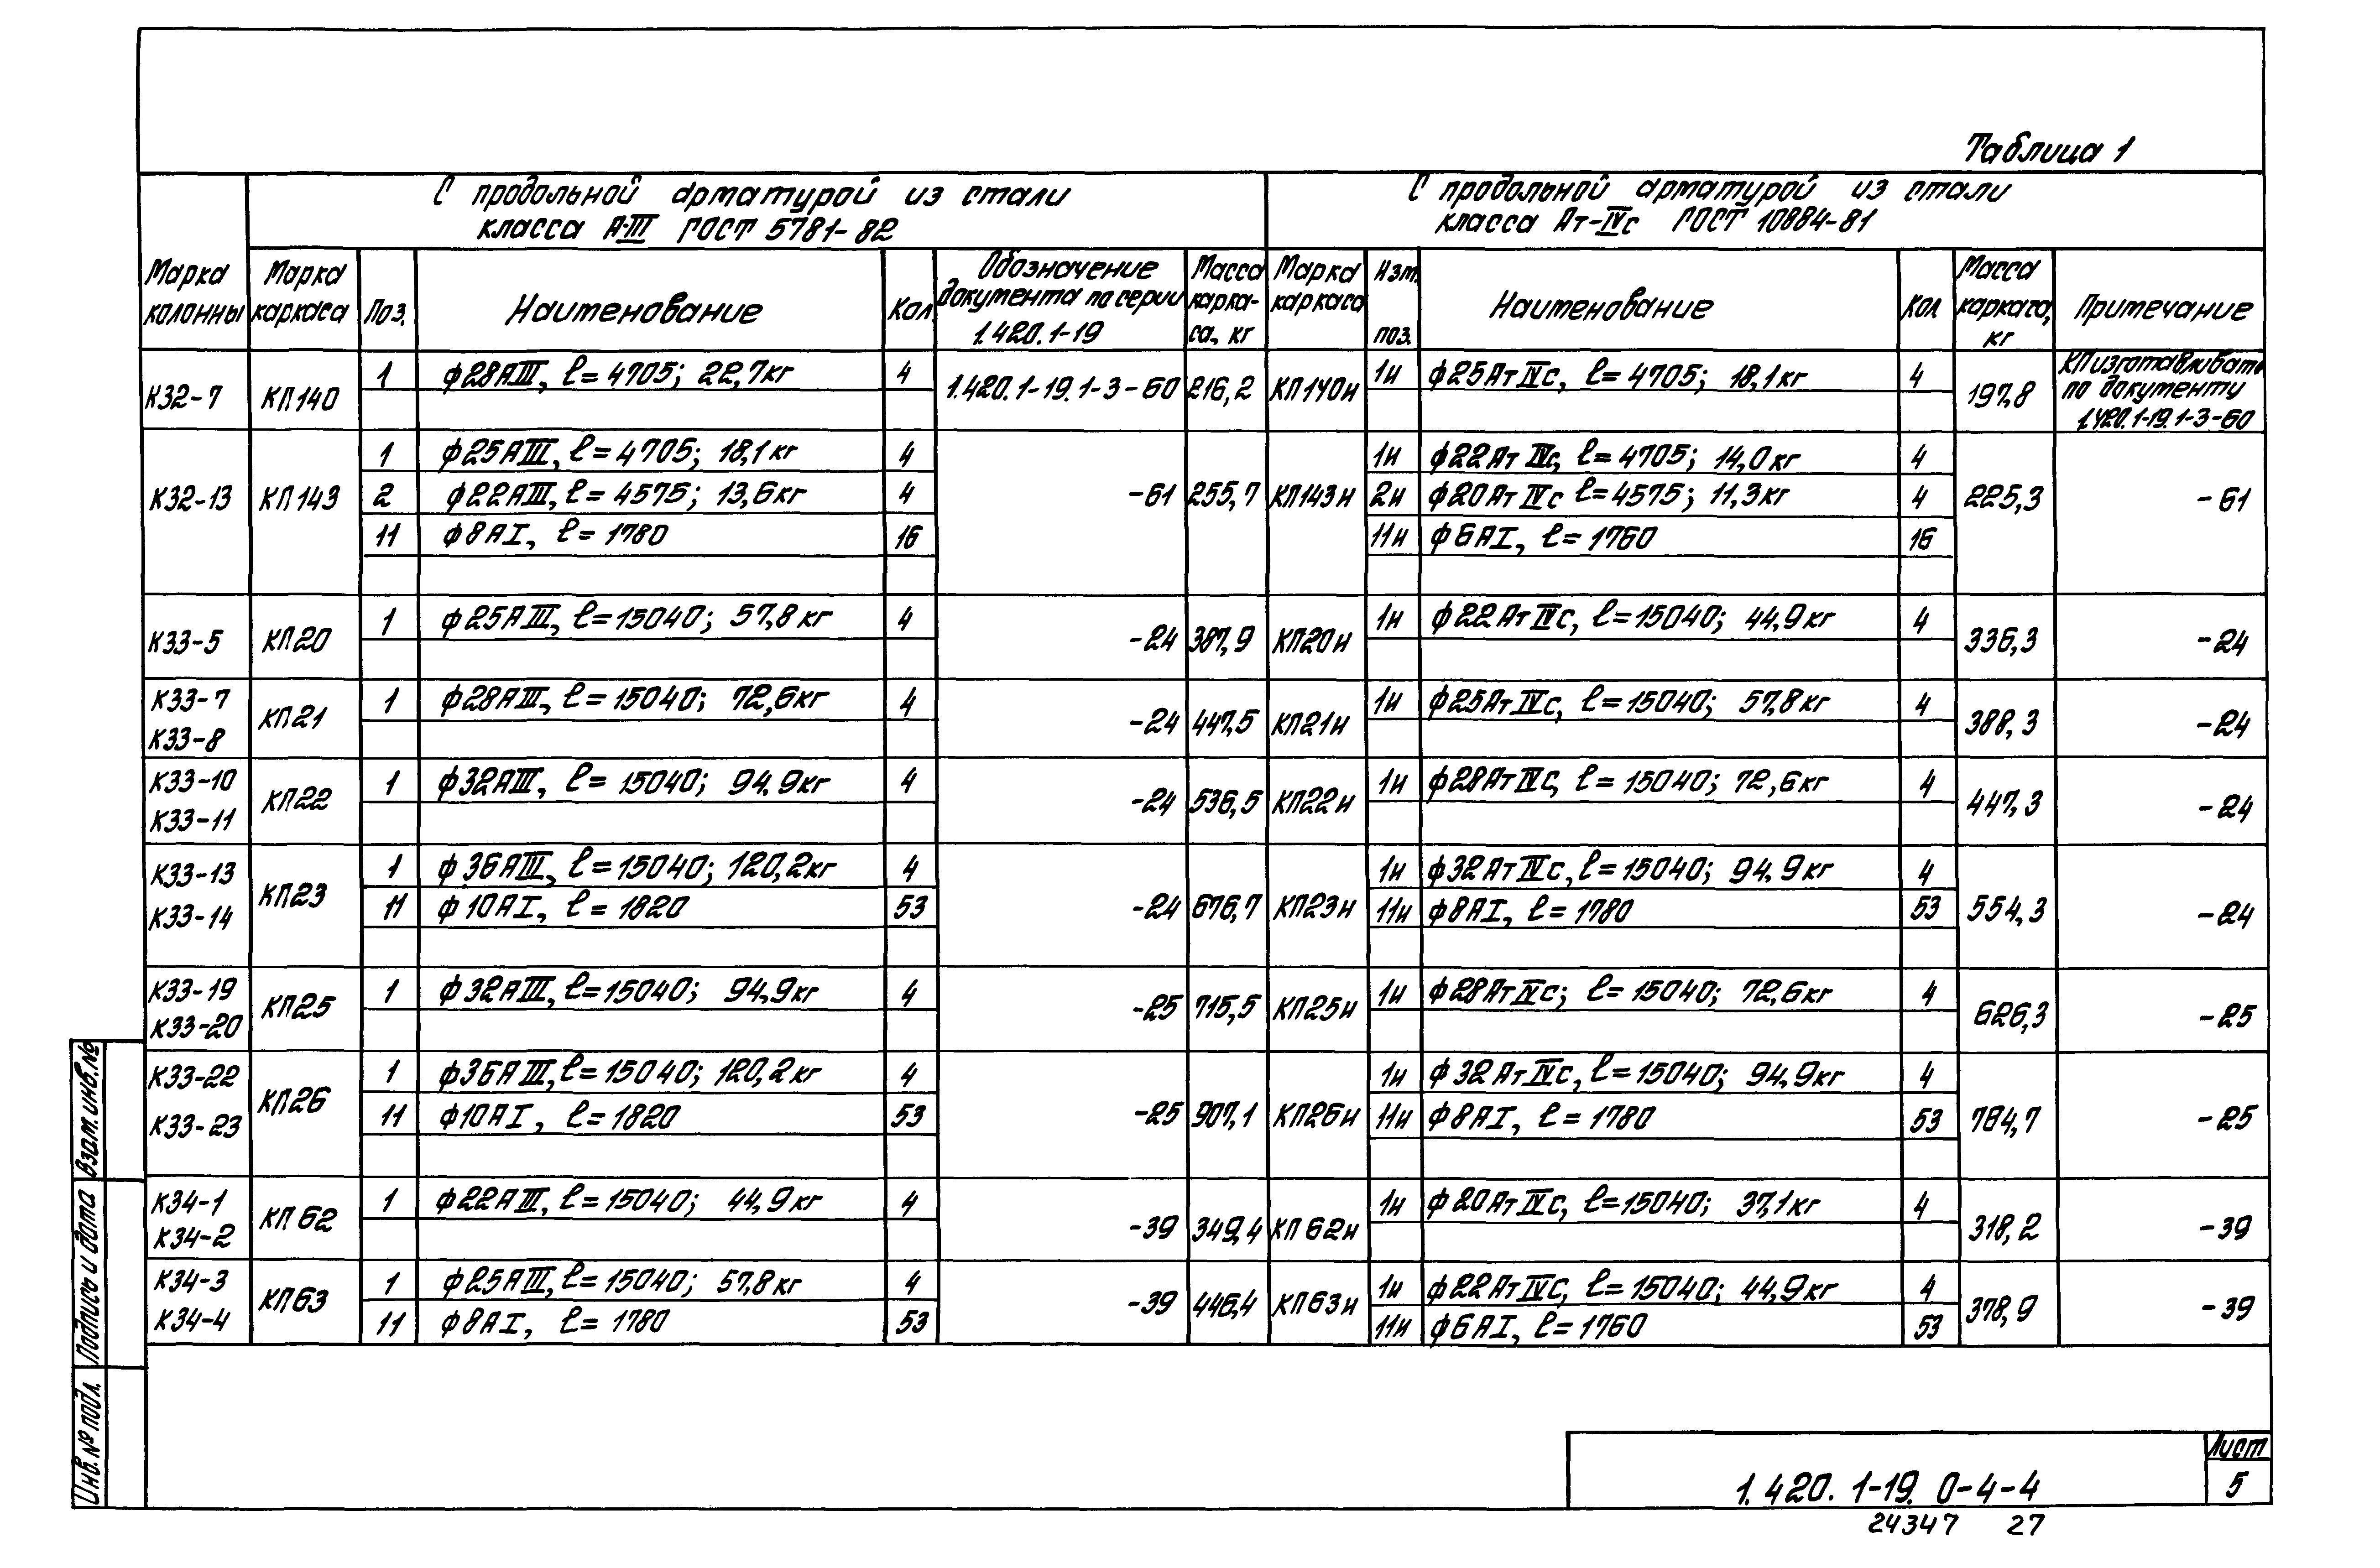 Таблица 1
С продольной арматурой из стали
класса А-III ГОСТ 5781-82
С продольной арматурой из стали
класса Ат-IVс ГОСТ 10884-81
Марка
колонны
Марка
каркаса
Поз.
Наименование
Кол.
Обозначение
документа по серии
1.420.1-19
Масса
карка-
са, кг
Марка
каркаса
Изм.
поз.
Наименование
Кол
Масса
каркаса,
кг
Примечание
К32-7 КП140 1 ф28АIII, ℓ=4705; 22,7кг 4 1.420.1-19.1-3-60 216,2 КП140и 1и ф25АтIVс, ℓ=4705; 18,1кг 4 197,8
КП изготавливать
по документу
1.420.1-19.1-3-60
К32-13 КП143 -61 255,7 КП143и 225,3 -61
1 ф25АIII, ℓ=4705; 18,1кг 4 1и ф22АтIVс, ℓ=4705; 14,0кг 4
2 ф22АIII, ℓ=4575; 13,6кг 4 2и ф20АтIVс ℓ=4575; 11,3кг 4
11 ф8АI, ℓ=1780 16 11и ф6АI, ℓ=1760 16
К33-5 КП20 1 ф25АIII, ℓ=15040; 57,8кг 4 -24 387,9 КП20и 1и ф22АтIVс, ℓ=15040; 44,9кг 4 336,3 -24
К33-7
К33-8
КП21 1 ф28АIII, ℓ=15040; 72,6кг 4 -24 447,5 КП21и 1и ф25АтIVс, ℓ=15040; 57,8кг 4 388,3 -24
К33-10
К33-11
КП22 1 ф32АIII, ℓ=15040; 94,9кг 4 -24 536,5 КП22и 1и ф28АтIVс, ℓ=15040; 72,6кг 4 447,3 -24
К33-13
К33-14
КП23 -24 676,7 КП23и 554,3 -24
1 ф36АIII, ℓ=15040; 120,2кг 4 1и ф32АтIVс, ℓ=15040; 94,9кг 4
11 ф10АI, ℓ=1820 53 11и ф8АI, ℓ=1780 53
К33-19
К33-20
КП25 1 ф32АIII, ℓ=15040; 94,9кг 4 -25 715,5 КП25и 1и ф28АтIVс; ℓ=15040; 72,6кг 4 626,3 -25
К33-22
К33-23
КП26 -25 907,1 КП26и 784,7 -25
1 ф36АIII, ℓ=15040; 120,2кг 4 1и ф32АтIVс, ℓ=15040; 94,9кг 4
11 ф10АI, ℓ=1820 53 11и ф8АI, ℓ=1780 53
К34-1
К34-2
КП62 1 ф22АIII, ℓ=15040; 44,9кг 4 -39 349,4 КП62и 1и ф20АтIVс, ℓ=15040; 37,1кг 4 318,2 -39
К34-3
К34-4
КП63 -39 446,4 КП63и 378,9 -39
1 ф25АIII, ℓ=15040; 57,8кг 4 1и ф22АтIVс, ℓ=15040; 44,9кг 4
11 ф8АI, ℓ=1780 53 11и ф6АI, ℓ=1760 53
Взам. инв. №
Подпись и дата
Инв. № подл.
1.420.1-19.0-4-4
Лист
5
24347 27